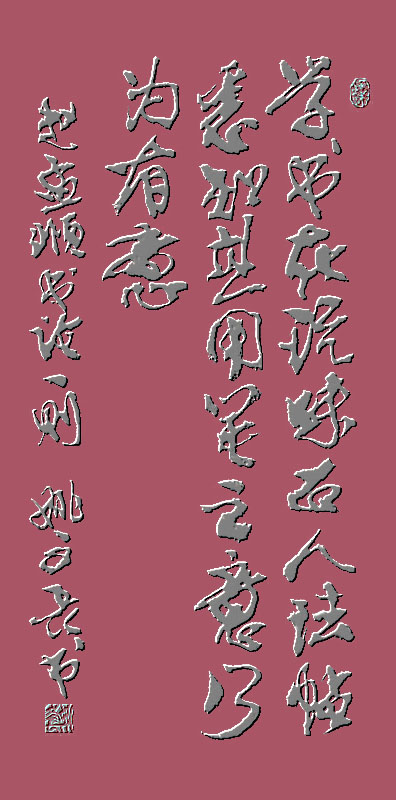 学书在玩味古人法帖
悉知其用笔之意乃
为有益
赵孟頫书论一则 姚
书